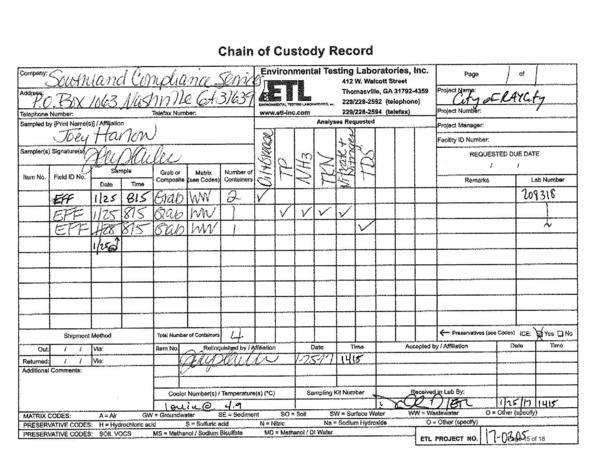 Chain of Custody Record
Company: Southland Compliance Services
Address: P.O. Box 1063 Nashville GA 31639
Telephone Number: Telefax Number:
ETL
ENVIRONMENTAL TESTING LABORATORIES, INC.
Environmental Testing Laboratories, Inc.
412 W. Walcott Street
Thomasville, GA 31792-4359
229/228-2592 (telephone)
www.etl-inc.com 229/228-2594 (telefax)
Page of
Project Name: City of RAY City
Project Number:
Project Manager:
Facility ID Number:
REQUESTED DUE DATE
/ /
Sampled by [Print Name(s)] / Affiliation
Joey Harlon
Sampler(s) Signature(s)
Analyses Requested
TP
NH3
TKN
TDS
Item No. Field ID No. Sample Date Time Grab or Composite Matrix (see Codes) Number of Containers Remarks Lab Number
EFF 1/25 815 Grab WW 2 ✓ 209318
EFF 1/25 815 Grab WW 1 ✓ ✓ ✓ ✓
EFF 815 Grab WW 1 ✓
1/25
Shipment Method Total Number of Containers 4 ← Preservatives (see Codes) ICE: ☑ Yes ☐ No
Out: / / Via: Item No. Relinquished by / Affiliation Date Time Accepted by / Affiliation Date Time
1-25-17 1415
Returned: / / Via:
Additional Comments:
Cooler Number(s) / Temperature(s) (°C) Sampling Kit Number Received in Lab By:
@ 4.9 ETL 1/25/17 1415
MATRIX CODES: A = Air GW = Groundwater SE = Sediment SO = Soil SW = Surface Water WW = Wastewater O = Other (specify)
PRESERVATIVE CODES: H = Hydrochloric acid S = Sulfuric acid N = Nitric Na = Sodium Hydroxide O = Other (specify)
PRESERVATIVE CODES: SOIL VOCS MS = Methanol / Sodium Bisulfate MD = Methanol / DI Water
ETL PROJECT NO. of 18